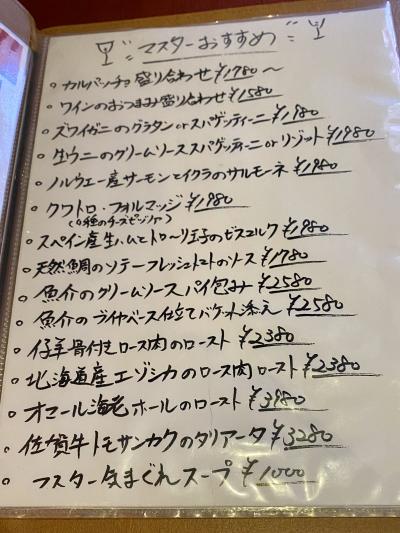 マスターおすすめ
・カルパッチョ盛り合わせ ¥1780～
・ワインのおつまみ盛り合わせ ¥1580
・ズワイガニのグラタン or スパゲッティーニ ¥1980
・生ウニのクリームソーススパゲッティーニ or リゾット ¥1980
・ノルウェー産サーモンとイクラのサルモーネ ¥1980
・クワトロ・フォルマッジ ¥1980
(4種のチーズピッツァ)
・スペイン産生ハムとトロ～リ玉子のビスマルク ¥1980
・天然鯛のソテーフレッシュトマトのソース ¥1780
・魚介のクリームソースパイ包み ¥2580
・魚介のブイヤベース仕立てバケット添え ¥2580
・仔羊骨付きロース肉のロースト ¥2380
・北海道産エゾシカのロース肉ロースト ¥2380
・オマール海老ホールのロースト ¥3980
・佐賀牛トモサンカクのタリアータ ¥3280
・マスター気まぐれスープ ¥1000